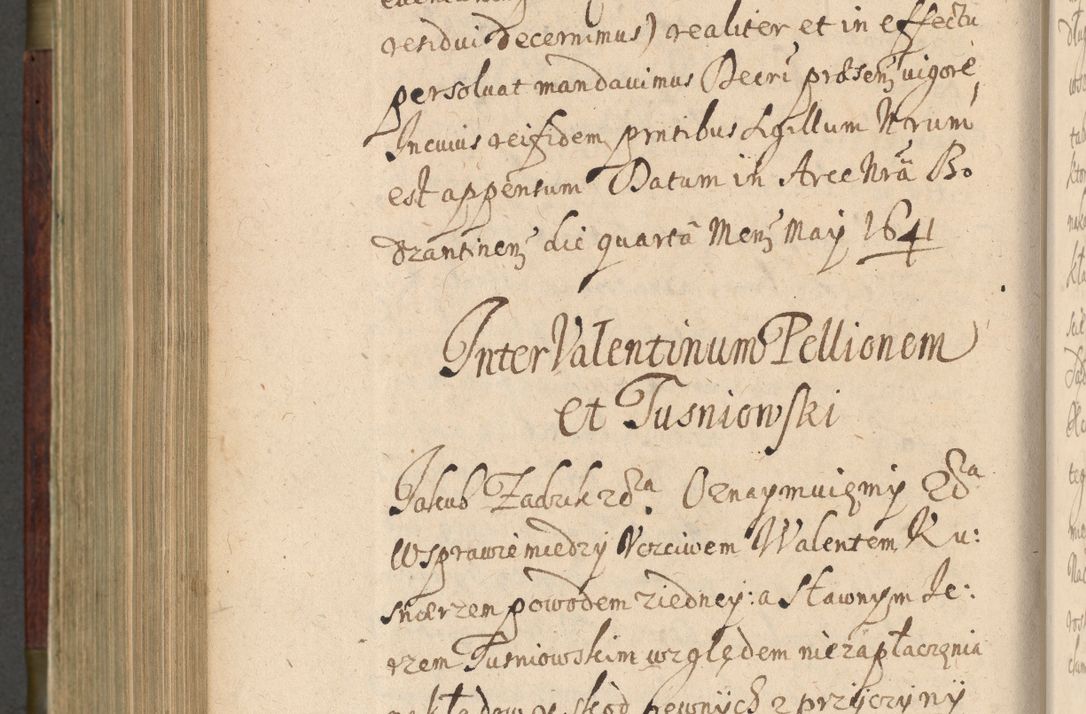 residui decernimus) realiter et in effectu
persoluat mandauimus Decri präsenz uigore,
Incuius rei fidem prntibus Sigillum Nrum
est appensum Datum in Arce Nrã Bo
dzantinenz die quartã Menz Maÿ 1641
Inter Valentinum Pellionem
et Tusniowski
Jakub Zadzik zẟa. Oznaymuięmÿ Zẟa
W sprawie miedzÿ Vczciwem Walentem Ku:
snierzem powodem ziedneÿ: a Sławnÿm Je:
rzem Tusniowskim względem niezapłacęnia
nakładow ÿ skod pewnÿch z przÿczÿnÿ